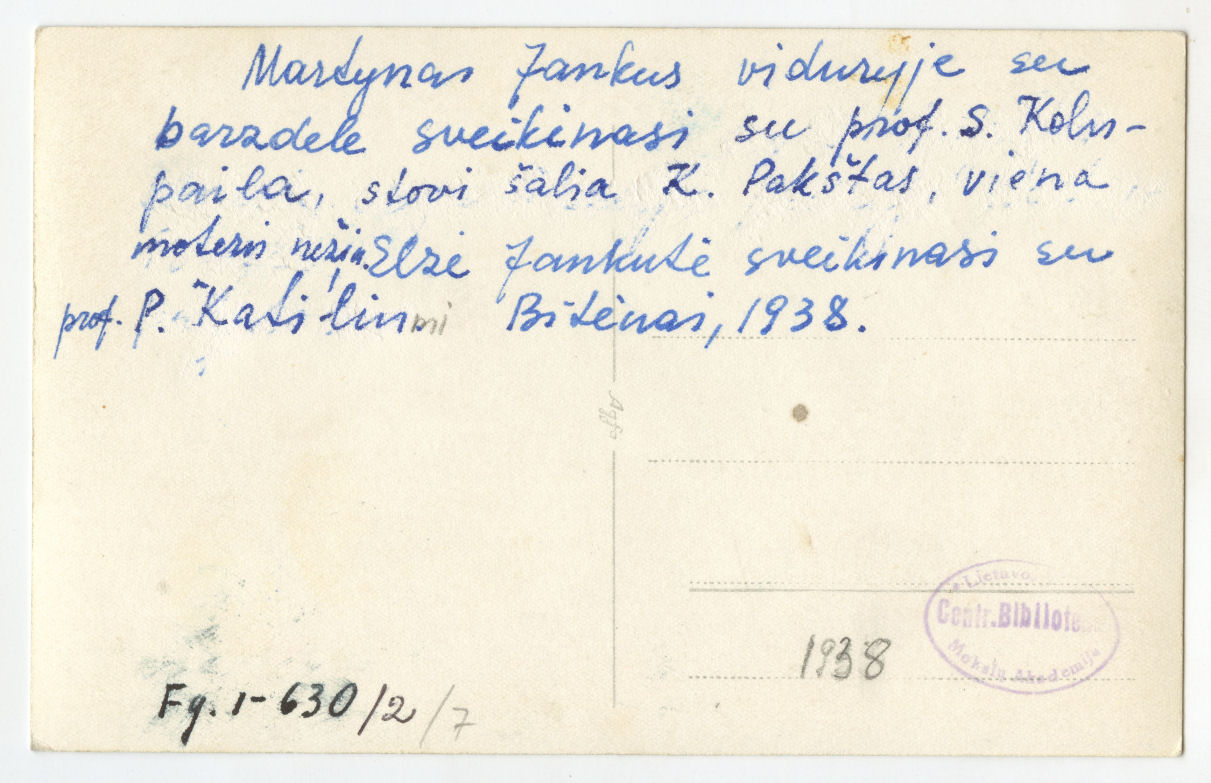 Martynas Jankus viduryje su
barzdele sveikinasi su prof. S. Kolu-
paila, stovi šalia K. Pakštas, viena
moteris nežin. Elzė Jankutė sveikinasi su
prof. P. Katilium mi Bitėnai, 1938.
Agfa
Lietuvo
Centr. Bibliote
Mokslų Akademija
1938
Fg. 1-630/2/7